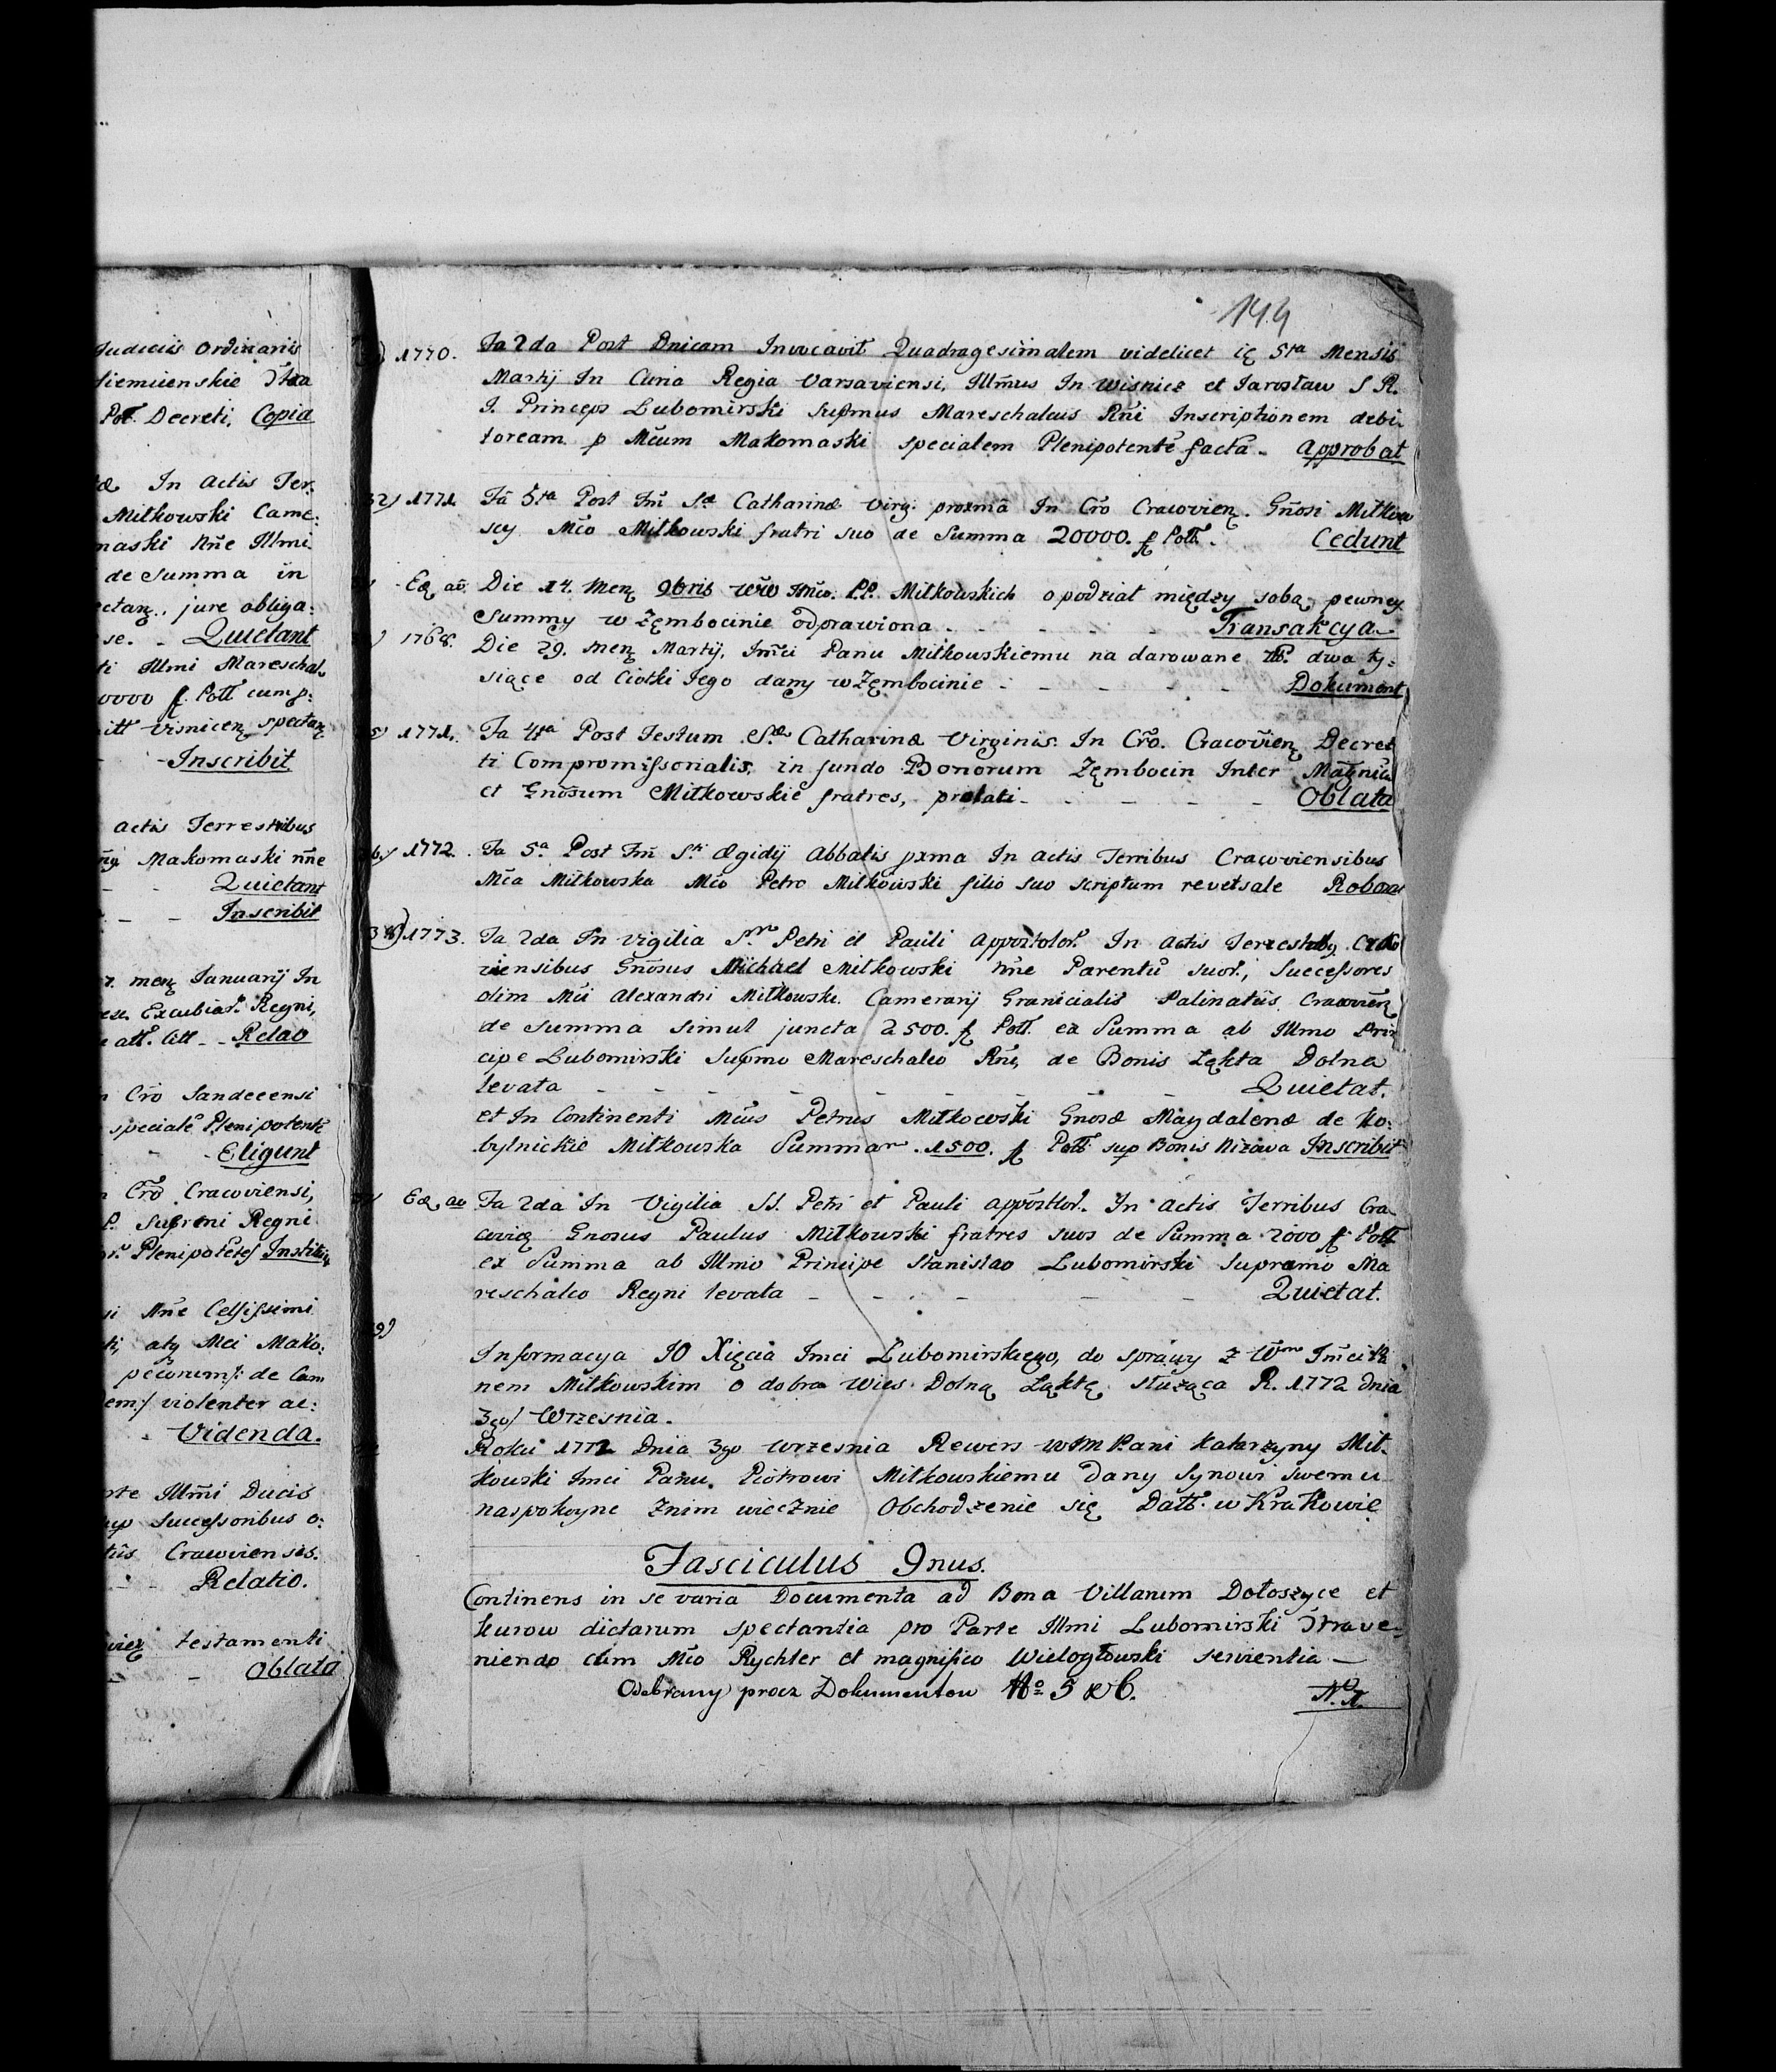 Judiciis Ordinariis
Decreti, Copia
In Actis Ter:
Miłkowski Came:
maski Nñe Illmi
de Summa in
jure obliga:
se. - Quietant
ti Illmi Mareschal
0000 f. Poll cum p:
Visnicen spectan
- Inscribit
actis Terrestribus
Makomaski nñe
- - Quietant
- - Inscribit
men Januarij In
Regni,
Relao
n Crõ Sandecensi
speciale Plenipotente
- Eligunt
n Crõ Cracoviensi,
P. Supremi Regni
Nñe Celsissimi
Mci Mako:
de Cam
em:/ violenter ac:
- Videnda.
Illmi Ducis
Successoribus o:
Cracoviensis.
- - Relatio.
testamenti
- Oblata
144
1770. Fa 2da Post Dnicam Invocavit Quadragesimalem videlicet 5ta Mensis
Martij In Curia Regia Varsaviensi, Illmus In Wisnicz et Jarosław S R.
I. Princeps Lubomirski Supmus Mareschalcus Rñi Inscriptionem debi-
toream p Mcum Makomaski specialem Plenipotente facta - Approbat
32) 1771. Fa 5ta Post Fm̃ Sæ Catharinæ Virg: proxmã In Crõ Cracovien. Gñosi Miłkow
scy Mco Miłkowski fratri suo de Summa 20000. f Poll. Cedunt
Eo ão. Die 14. Men 9bris Imc. P.P. Miłkowskich o podział między sobą pewney
Summy w Zębocinie odprawiona - - - - Transakcya -
1768. Die 29. Men Martij, Imci Panu Miłkowskiemu na darowane dwa ty:
siące od Ciotki Jego dany w Zębocinie - - - - - Dokument
5) 1771. Fa 4ta Post Festum Sæ Catharinæ Virginis In Crõ. Cracovien Decret
ti Compromissorialis, in fundo Bonorum Zębocin Inter Magnũ
et Gnosum Miłkowskie fratres, prolati - - - - - Oblata
6) 1772. Fa 5a Post Fm̃ Sti Ægidij Abbatis pxma In actis Terribus Cracoviensibus
Mca Miłkowska Mco Petro Miłkowski filio suo scriptum reversale Roborat
38) 1773. Fa 2da In Vigilia Petri et Pauli Appostolor. In Actis Terrestrby Craco
viensibus Gnosus Michael Miłkowski Nñe Parentũ suor., Successores
olim Mci Alexandri Miłkowski Camerarij Granicialis Palinatus Cracovien
de Summa simul juncta 2500. f Poll. ex Summa ab Illmo Prin
cipe Lubomirski Supmo Mareschalco Rñi, de Bonis Łąkta Dolna
levata - - - - - - - - - Quietat.
et In Continenti Mcus Petrus Miłkowski Gnosæ Magdalenæ de Ko:
bylnickie Miłkowska Summam 1500. f Poll. sup Bonis Nizowa Inscribit
Eo ao Fa 2da In Vigilia SS. Petri et Pauli appostlor. In Actis Terribus Cra-
covien Gnosus Paulus Miłkowski fratres suos de Summa 2000 f Poll
ex Summa ab Illmo Principe Stanislao Lubomirski Supremo Ma
reschalco Regni levata - - - - - Quietat.
Informacya JO Xięcia Imci Lubomirskiego, do sprawy z Wm Imci Pa
nem Miłkowskim o dobra Wieś Dolną Łąktę służąca R. 1772 dnia
3go/ Wrzesnia.
Roku 1772 dnia 3go wrzesnia Rewers WIM Pani Katarzyny Mił-
kowski Imci Panu Piotrowi Miłkowskiemu dany Synowi swemu
na spokoyne znim wiecznie Obchodzenie się Datt. w Krakowie
Fasciculus 9nus.
Continens in se varia Documenta ad Bona Villarum Dołoszyce et
Kurow dictarum spectantia pro Parte Illmi Lubomirski
niendo cum Mco Rychter et magnifico Wielogłowski servientia -
Odebrany procz Dokumentow No 5 & 6.